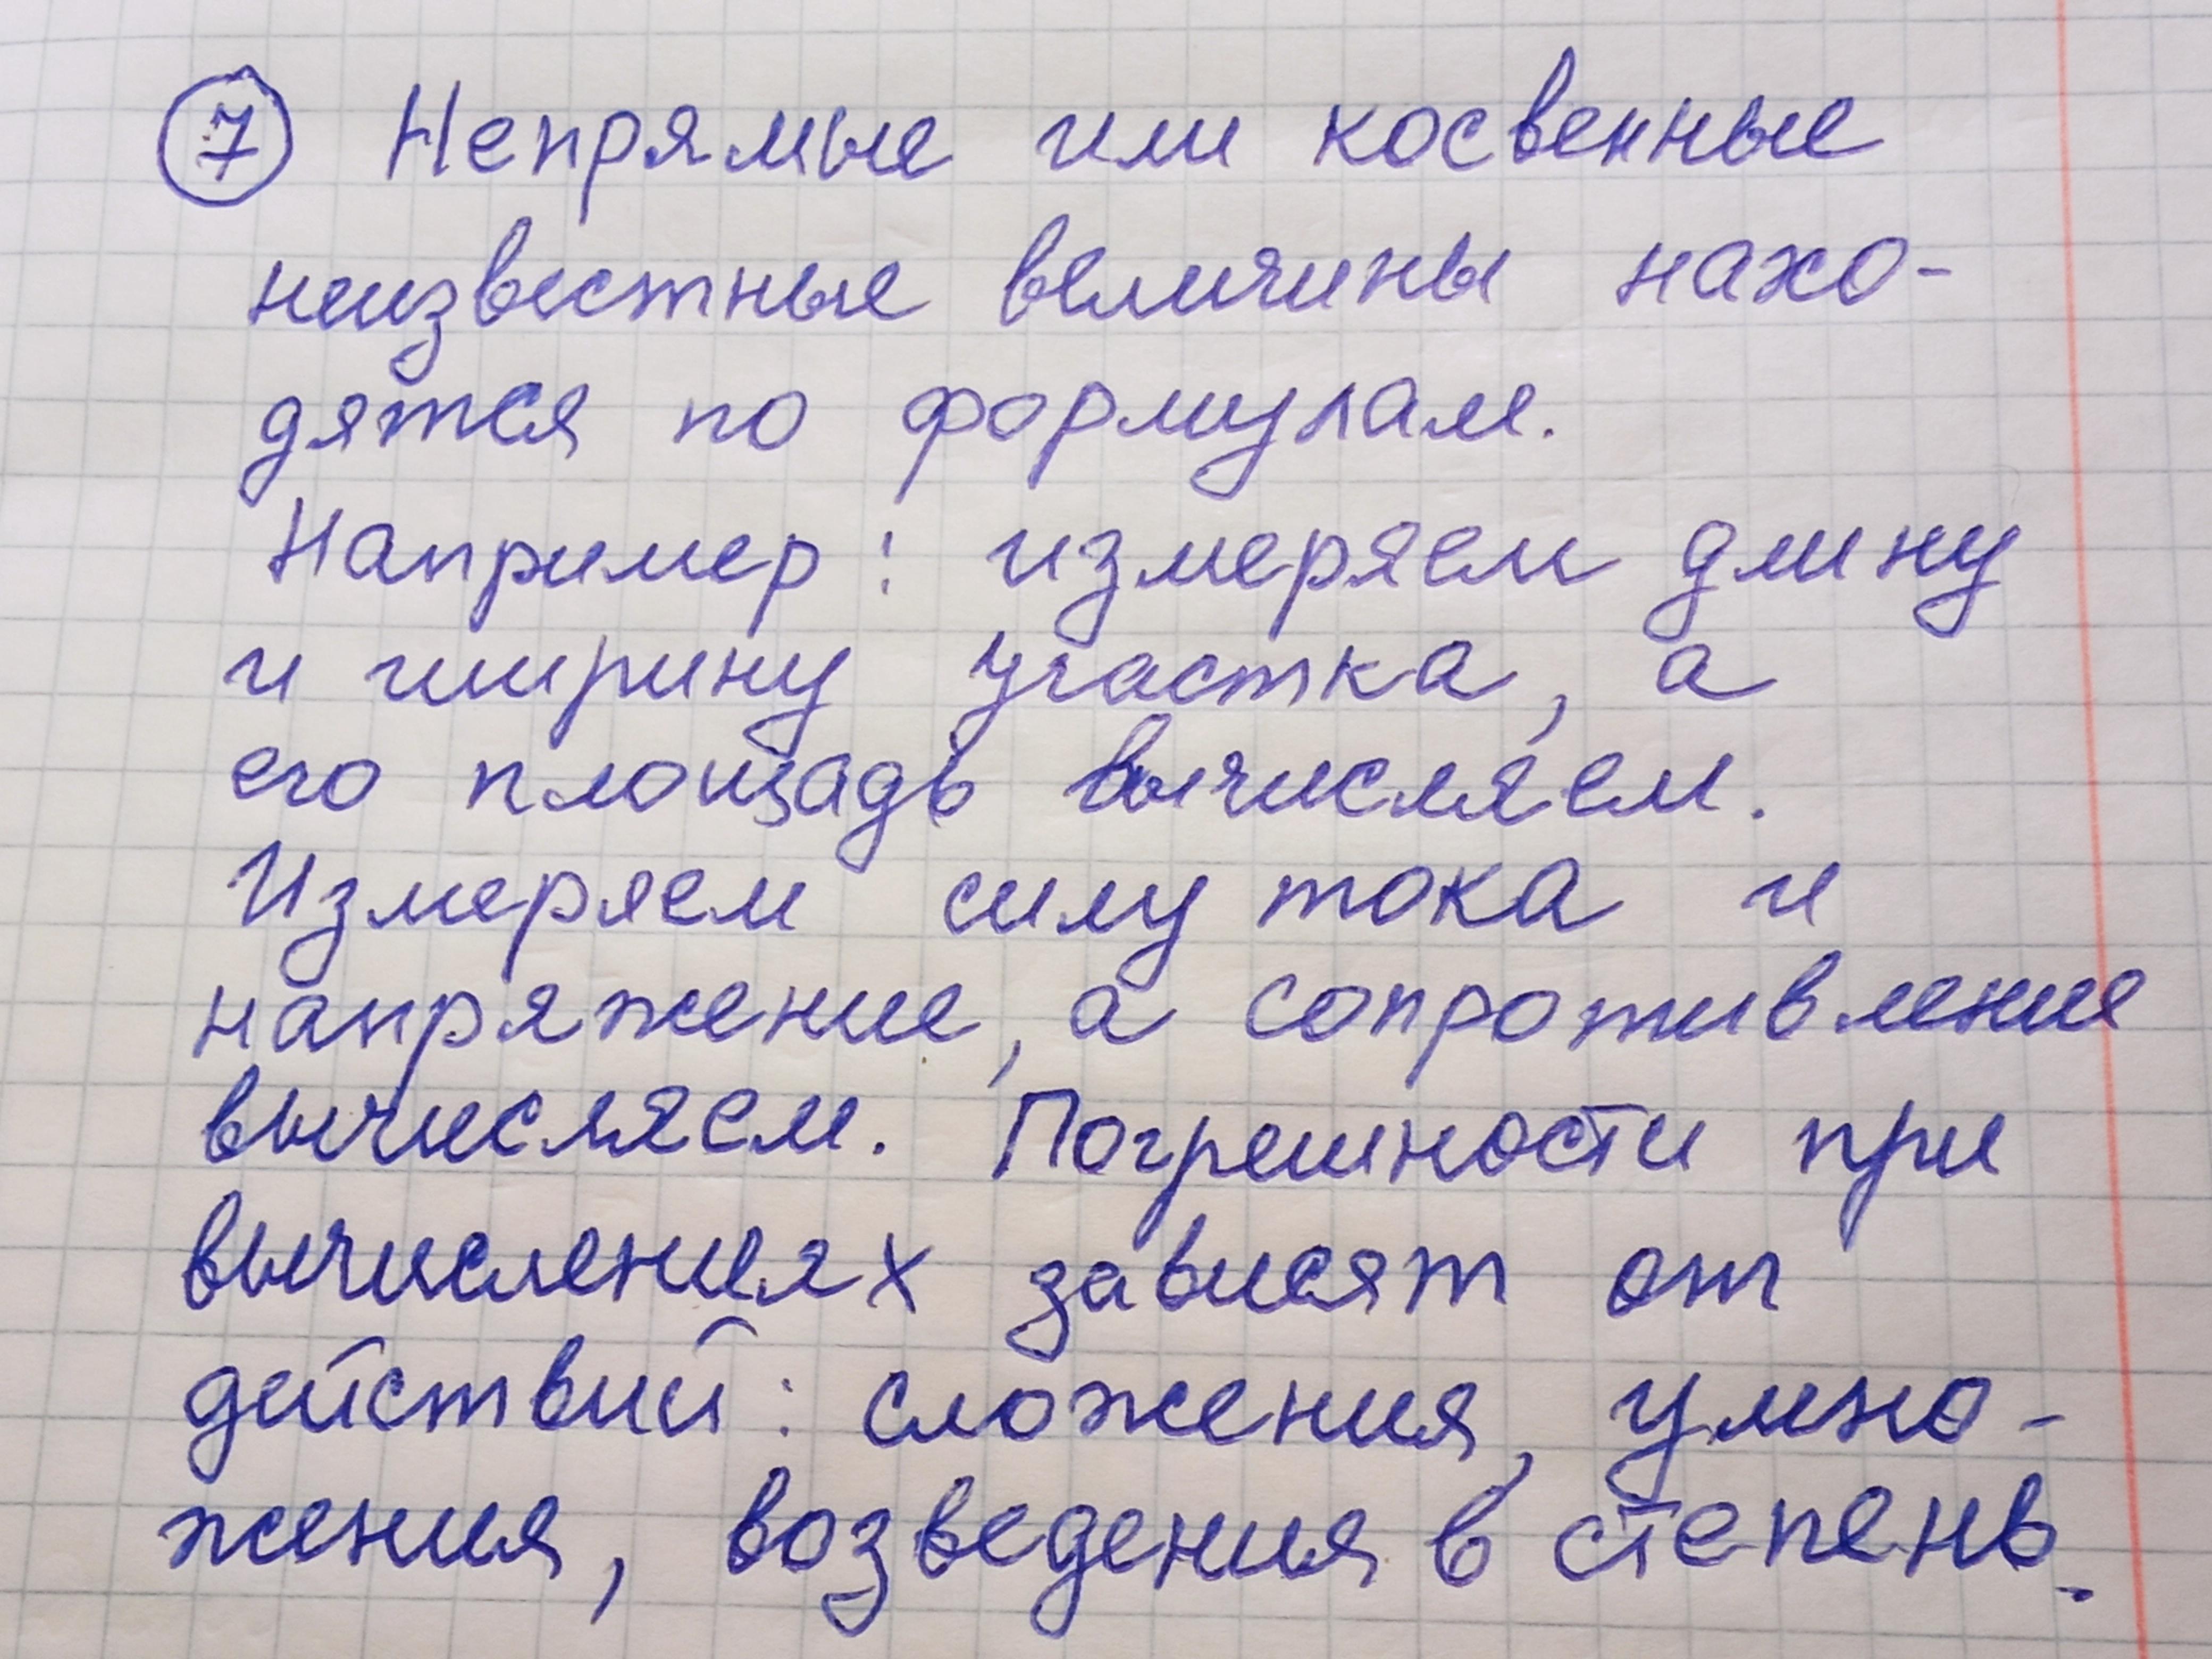 7 Непрямые или косвенные
неизвестные величины нахо-
дятся по формулам.
Например: измеряем длину
и ширину участка, а
его площадь вычисляем.
Измеряем силу тока и
напряжение, а сопротивление
вычисляем. Погрешности при
вычислениях зависят от
действий: сложения, умно-
жения, возведения в степень.